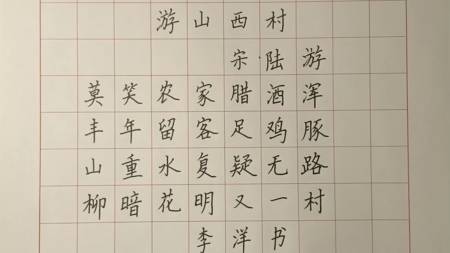 游山西村
宋·陆游
莫笑农家腊酒浑
丰年留客足鸡豚
山重水复疑无路
柳暗花明又一村
李洋书